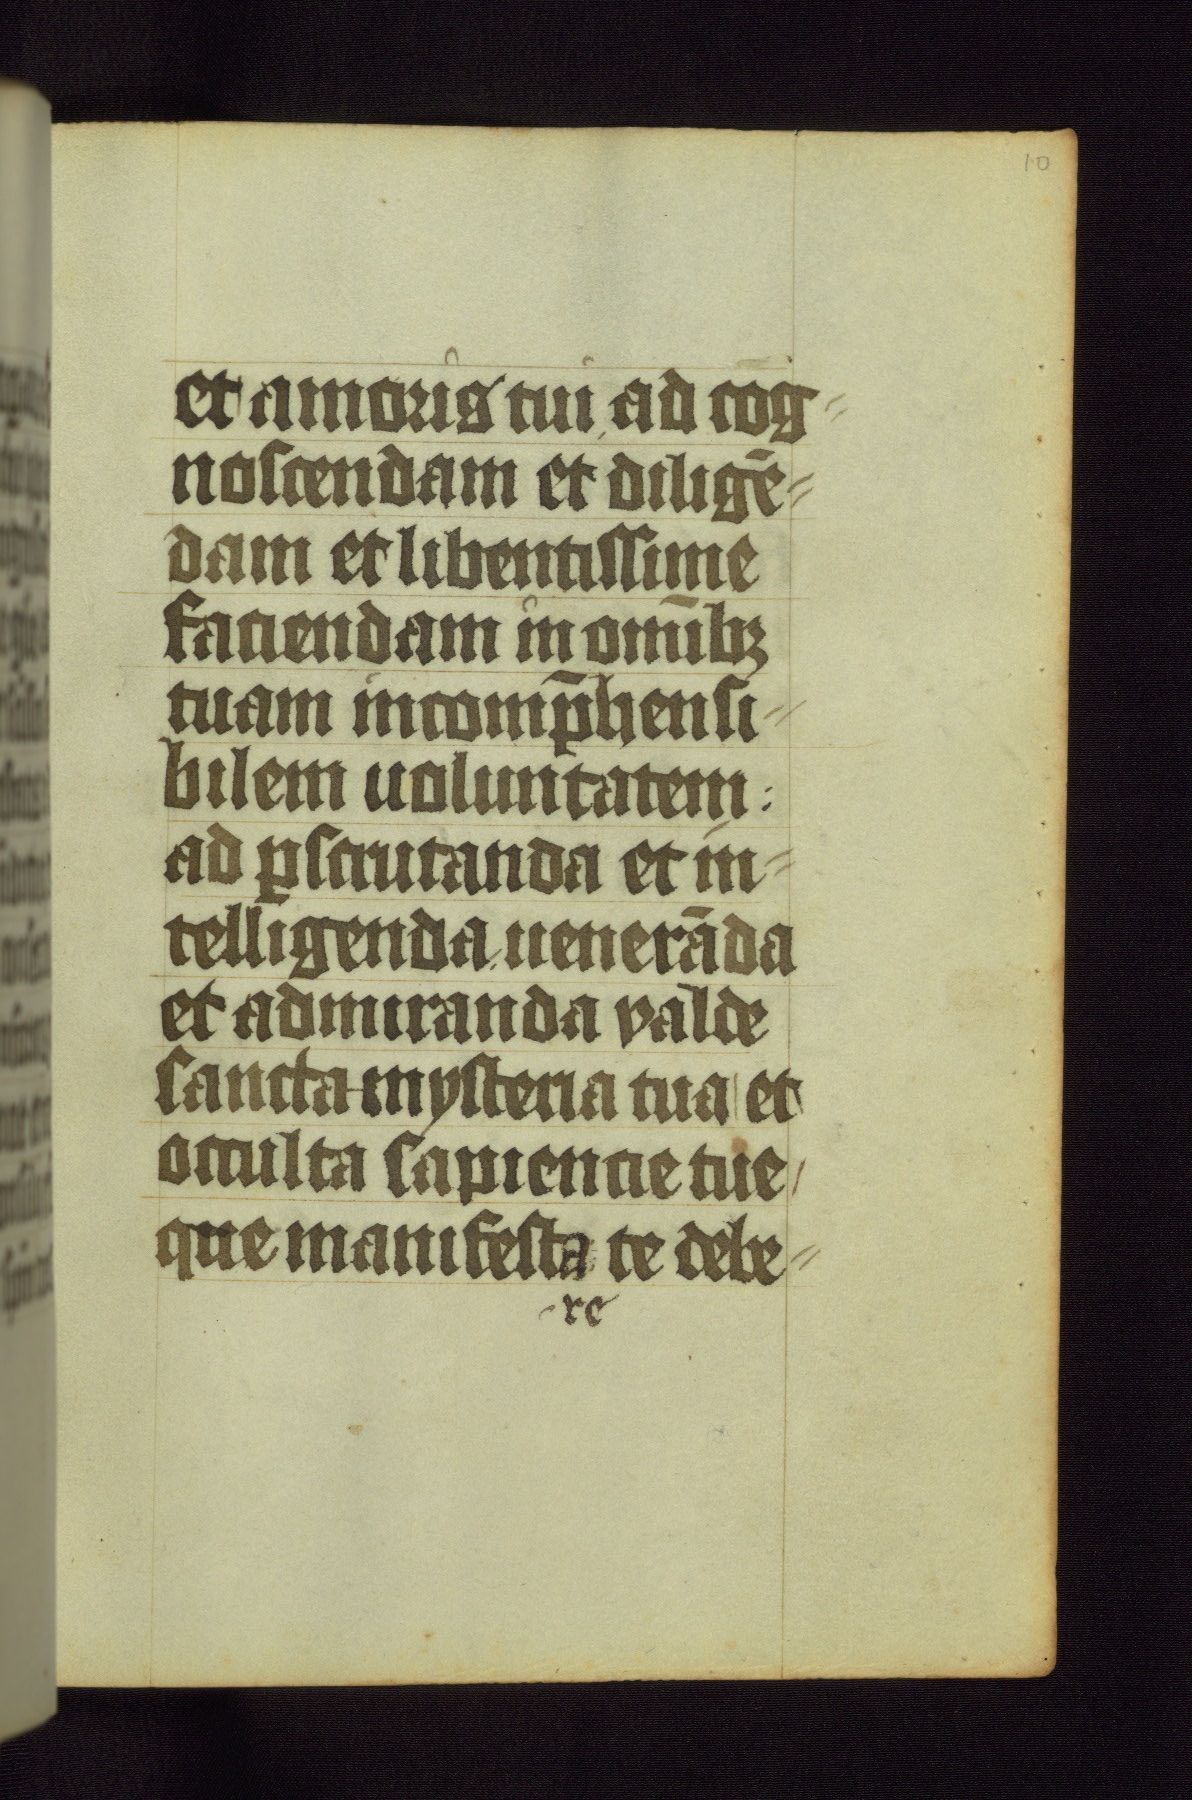 10
et amoris tui ad cog=
noscendam et diligē=
dam et libentissime
faciendam in omībꝫ
tuam incomp̄hensi=
bilem uoluntatem:
ad ꝑscrutanda et in=
telligenda uenerāda
et admiranda valde
sancta mysteria tua et
occulta sapiencie tue /
que manifesta te debe=
-re